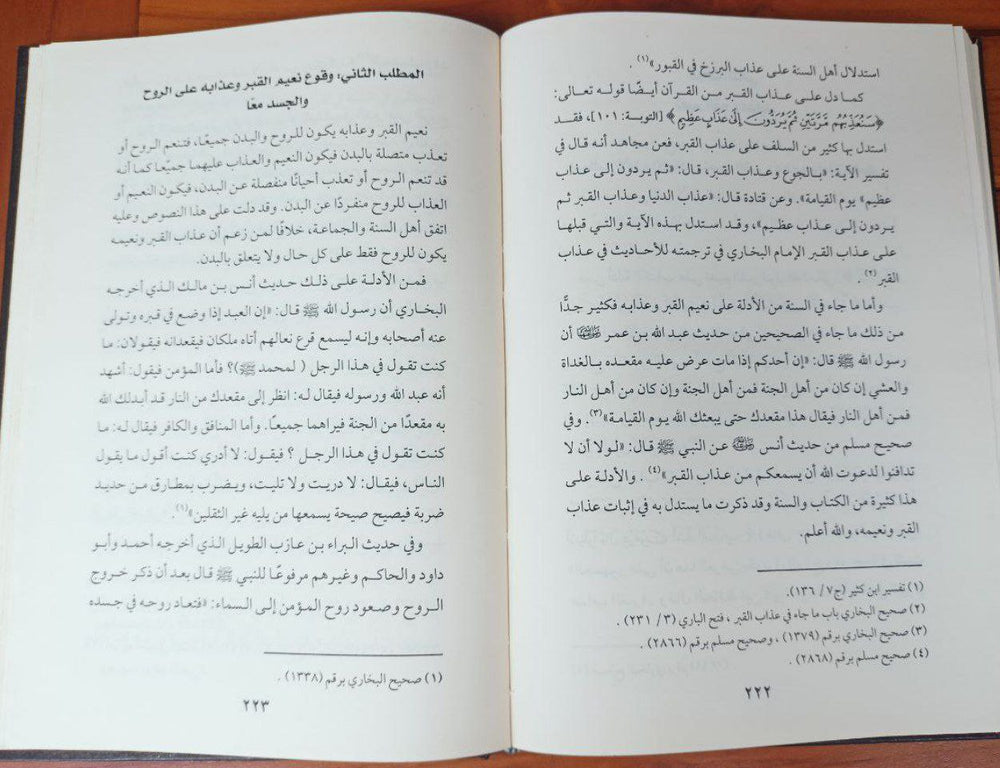 استدلال أهل السنة على عذاب البرزخ في القبور»(١) .
كما دل على عذاب القبر من القرآن أيضًا قوله تعالى:
﴿سَنُعَذِّبُهُم مَّرَّتَيْنِ ثُمَّ يُرَدُّونَ إِلَىٰ عَذَابٍ عَظِيمٍ﴾ [التوبة: ١٠١]، فقد
استدل بها كثير من السلف على عذاب القبر، فعن مجاهد أنه قال في
تفسير الآية: «بالجوع وعذاب القبر، قال: «ثم يردون إلى عذاب
عظيم» يوم القيامة». وعن قتادة قال: «عذاب الدنيا وعذاب القبر ثم
يردون إلى عذاب عظيم»، وقد استدل بهذه الآية والتي قبلها
على عذاب القبر الإمام البخاري في ترجمته للأحاديث في عذاب
القبر(٢) .
وأما ما جاء في السنة من الأدلة على نعيم القبر وعذابه فكثير جدًّا
من ذلك ما جاء في الصحيحين من حديث عبد الله بن عمر ﵄ أن
رسول الله ﷺ قال: «إن أحدكم إذا مات عرض عليه مقعده بالغداة
والعشي إن كان من أهل الجنة فمن أهل الجنة وإن كان من أهل النار
فمن أهل النار فيقال هذا مقعدك حتى يبعثك الله يوم القيامة»(٣). وفي
صحيح مسلم من حديث أنس ﵁ عن النبي ﷺ قال: «لولا أن لا
تدافنوا لدعوت الله أن يسمعكم من عذاب القبر»(٤) . والأدلة على
هذا كثيرة من الكتاب والسنة وقد ذكرت ما يستدل به في إثبات عذاب
القبر ونعيمه، والله أعلم.
(١) تفسير ابن كثير (ج٧/ ١٣٦).
(٢) صحيح البخاري باب ما جاء في عذاب القبر ، فتح الباري (٣/ ٢٣١) .
(٣) صحيح البخاري برقم (١٣٧٩) ، وصحيح مسلم برقم (٢٨٦٦) .
(٤) صحيح مسلم برقم (٢٨٦٨) .
٢٢٢
المطلب الثاني: وقوع نعيم القبر وعذابه على الروح
والجسد معًا
نعيم القبر وعذابه يكون للروح والبدن جميعًا، فتنعم الروح أو
تعذب متصلة بالبدن فيكون النعيم والعذاب عليهما جميعًا كما أنه
قد تنعم الروح أو تعذب أحيانًا منفصلة عن البدن، فيكون النعيم أو
العذاب للروح منفردًا عن البدن. وقد دلت على هذا النصوص وعليه
اتفق أهل السنة والجماعة، خلافًا لمن زعم أن عذاب القبر ونعيمه
يكون للروح فقط على كل حال ولا يتعلق بالبدن.
فمن الأدلة على ذلك حديث أنس بن مالك الذي أخرجه
البخاري أن رسول الله ﷺ قال: «إن العبد إذا وضع في قبره وتولى
عنه أصحابه وإنه ليسمع قرع نعالهم أتاه ملكان فيقعدانه فيقولان: ما
كنت تقول في هذا الرجل ( لمحمد ﷺ)؟ فأما المؤمن فيقول: أشهد
أنه عبد الله ورسوله فيقال له: انظر إلى مقعدك من النار قد أبدلك الله
به مقعدًا من الجنة فيراهما جميعًا. وأما المنافق والكافر فيقال له: ما
كنت تقول في هذا الرجل ؟ فيقول: لا أدري كنت أقول ما يقول
الناس، فيقال: لا دريت ولا تليت، ويضرب بمطارق من حديد
ضربة فيصيح صيحة يسمعها من يليه غير الثقلين»(١).
وفي حديث البراء بن عازب الطويل الذي أخرجه أحمد وأبو
داود والحاكم وغيرهم مرفوعًا للنبي ﷺ قال بعد أن ذكر خروج
الروح وصعود روح المؤمن إلى السماء: «فتعاد روحه في جسده
(١) صحيح البخاري برقم (١٣٣٨) .
٢٢٣